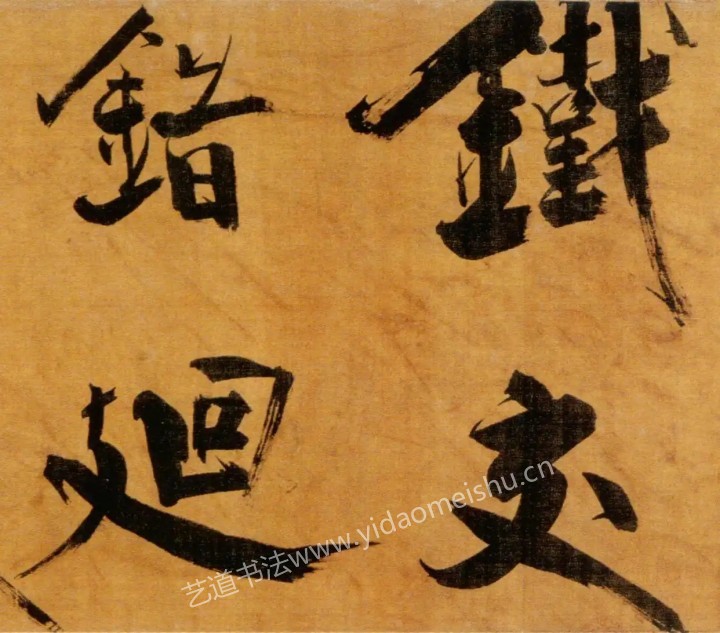 鐵交
錯廻
艺道书法www.yidaomeishu.cn